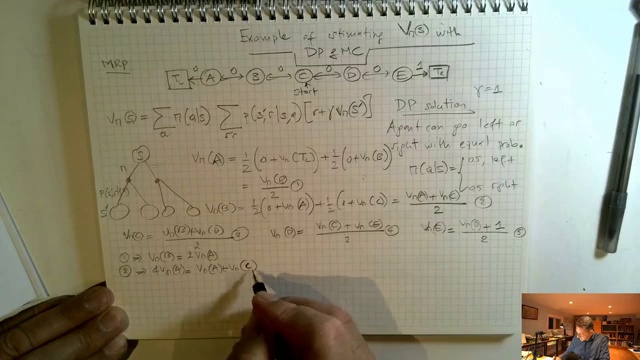 Example of estimating Vπ(s) with
DP & MC
MRP
T ← 0 A ↔ 0 B ↔ 0 C ↔ 0 D ↔ 0 E → 1 T
start
Vπ(s) = Σa π(a|s) Σs'r p(s',r|s,a) [r + γ Vπ(s')]
DP solution γ = 1
Agent can go left or
right with equal prob.
π(a|s) = { 0.5, left
0.5 right
s
π
s'
Vπ(A) = 1/2 (0 + Vπ(TL)) + 1/2 (0 + Vπ(B))
= Vπ(B)/2 ①
Vπ(B) = 1/2 (0 + Vπ(A)) + 1/2 (0 + Vπ(C)) = Vπ(A) + Vπ(C) / 2 ②
Vπ(C) = Vπ(B) + Vπ(D) / 2 ③ Vπ(D) = Vπ(C) + Vπ(E) / 2 ④ Vπ(E) = Vπ(D) + 1 / 2 ⑤
① ⇒ Vπ(B) = 2Vπ(A)
② ⇒ 4Vπ(A) = Vπ(A) + Vπ(C)